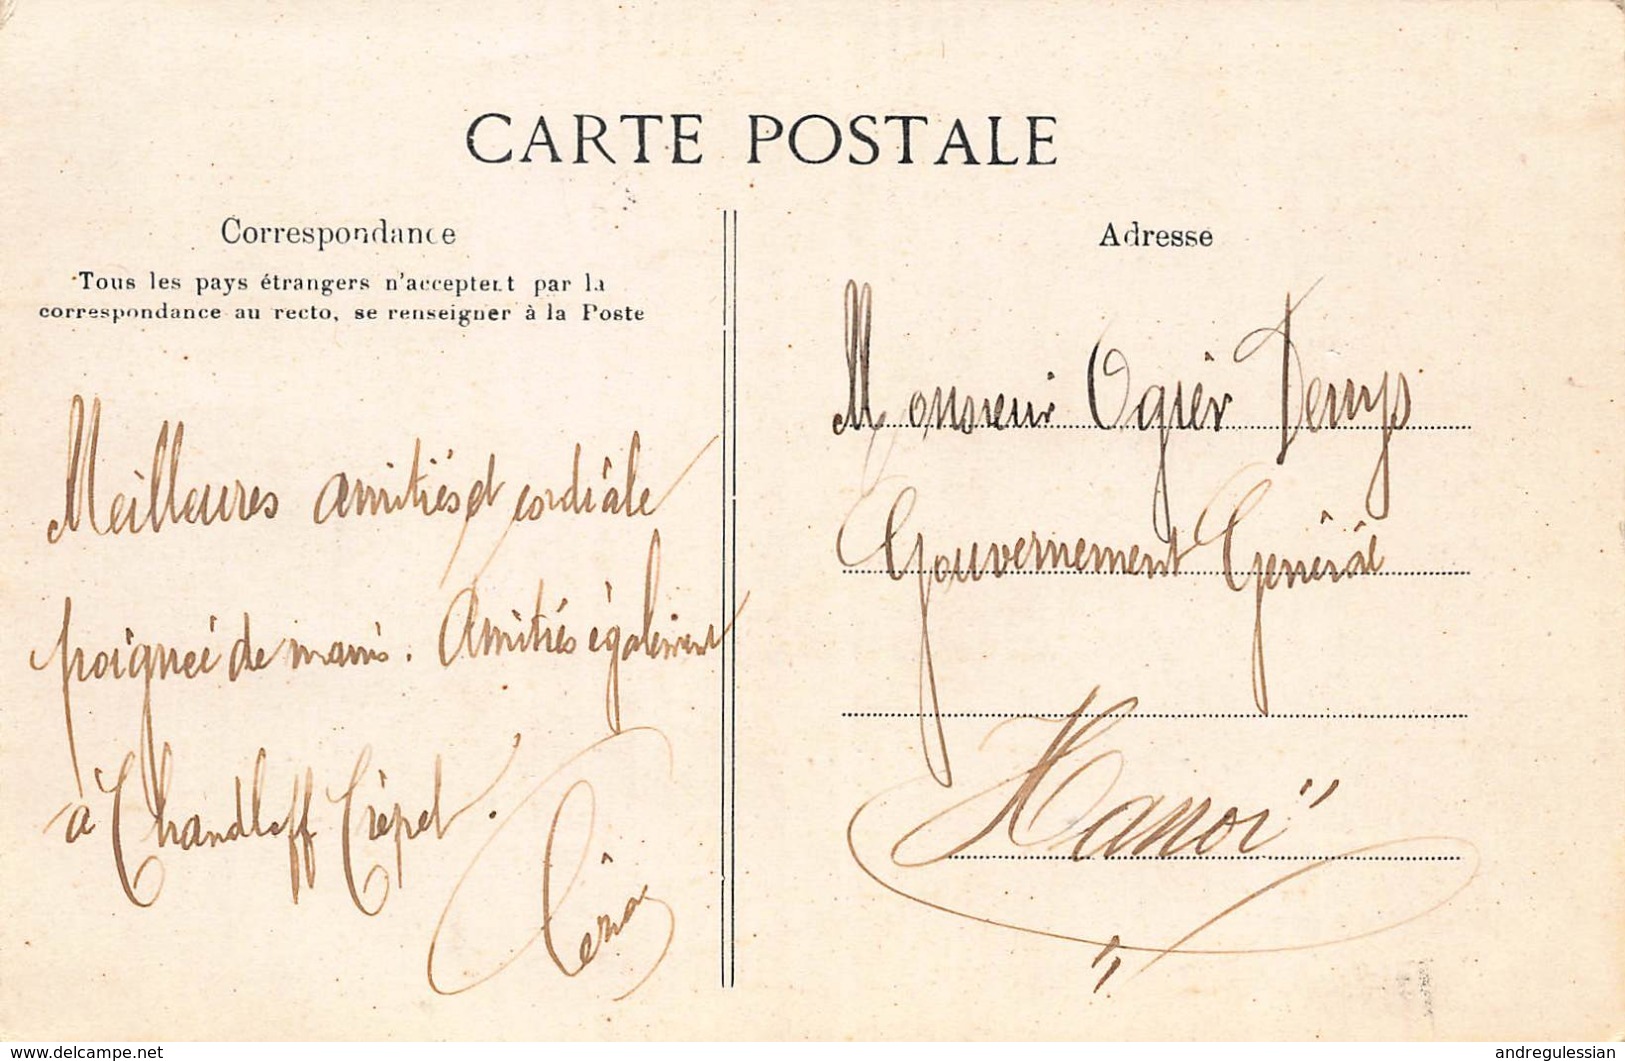 CARTE POSTALE
Correspondance
Tous les pays étrangers n'acceptent par la
correspondance au recto, se renseigner à la Poste
Adresse
Monsieur Ogier Denys
Gouvernement Général
Hanoï
Meilleures amitiés et cordiale
poignée de mains. Amitiés également
à Chandleff Crépet.
www.delcampe.net
andregulessian